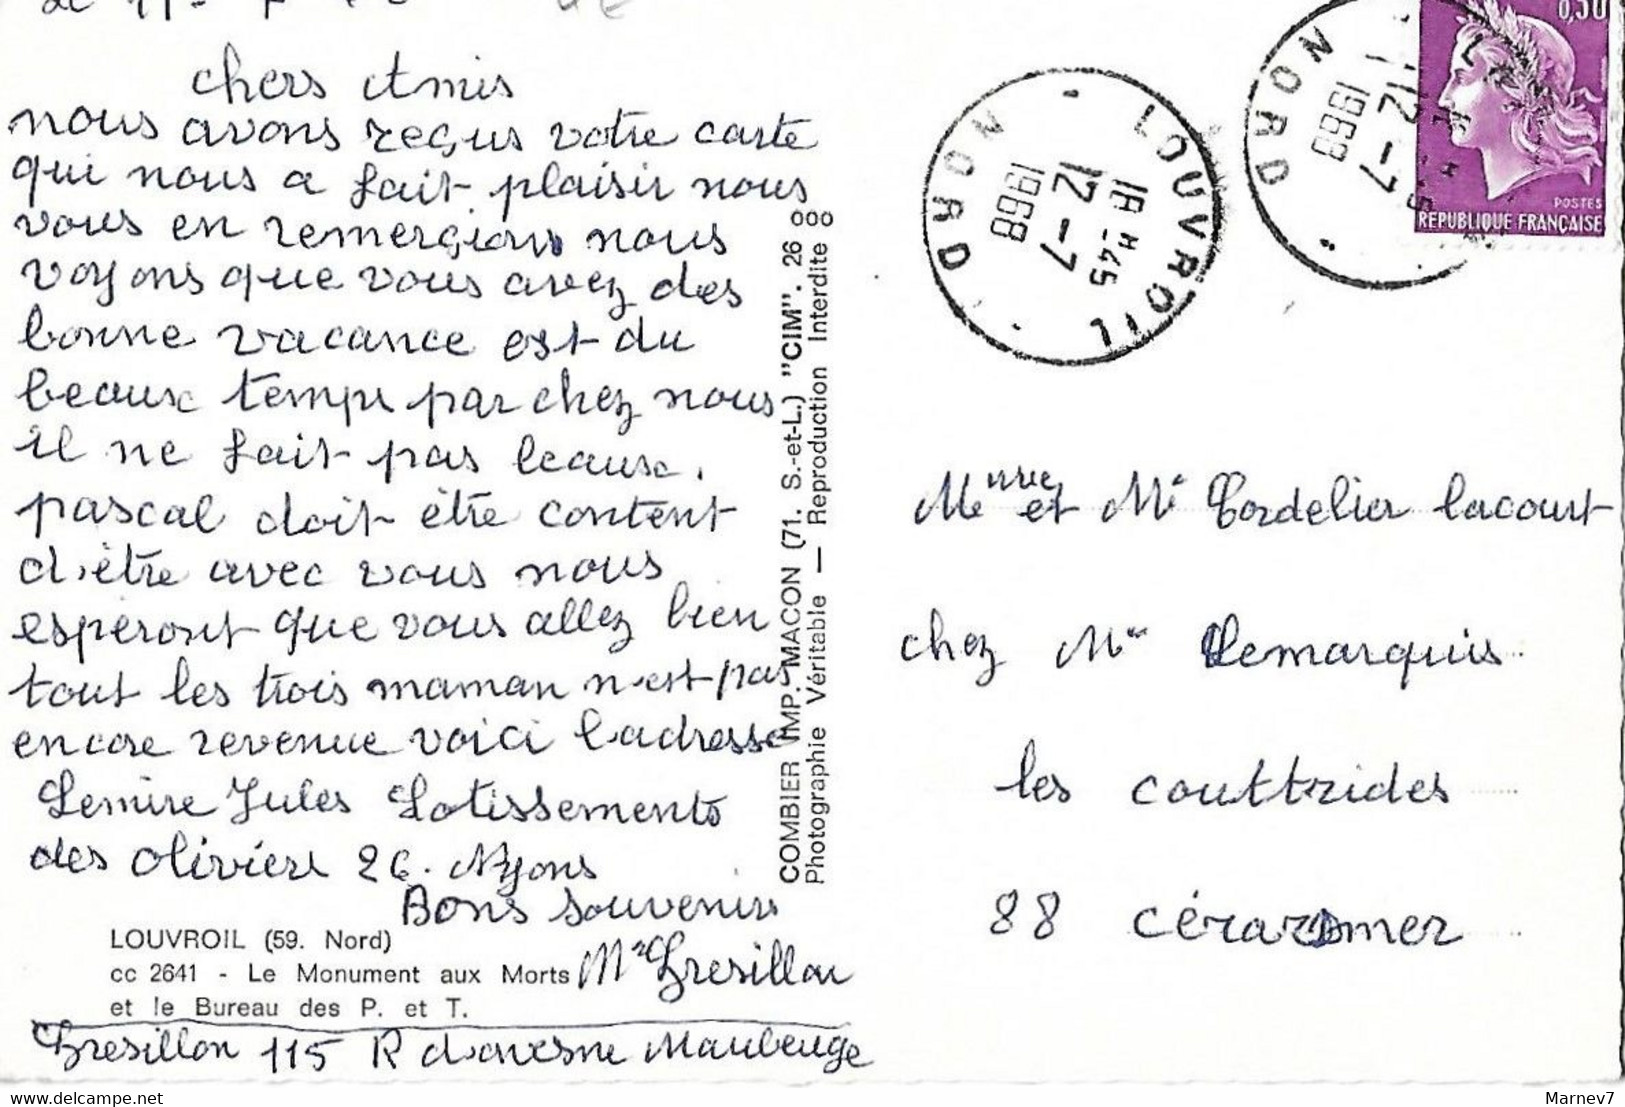 chers Amis
nous avons reçus votre carte
qui nous a fait plaisir nous
vous en remerçions nous
voyons que vous avez des
bonne vacance est du
beaux temps par chez nous
il ne fait pas beaux.
pascal doit être content
d'être avec vous nous
esperont que vous allez bien
tout les trois maman n'est pas
encore revenue voici l'adresse
Lemire Jules Lotissements
des Olivier 26. Nyons
Bons Souvenirs
Gresillon
LOUVROIL (59. Nord)
cc 2641 - Le Monument aux Morts
et le Bureau des P. et T.
Gresillon 115 R d'avesne Maubeuge
COMBIER IMP. MACON (71. S.-et-L.) "CIM". 26 000
Photographie Véritable — Reproduction Interdite
LOUVROIL
18 H 45
12 - 7
1968
NORD
12 - 7
1968
NORD
0,30
POSTES
REPUBLIQUE FRANÇAISE
et Mr Cordelier Lacourt
chez Lemarquis
les couttrides
88 cérardmer
Marnev7